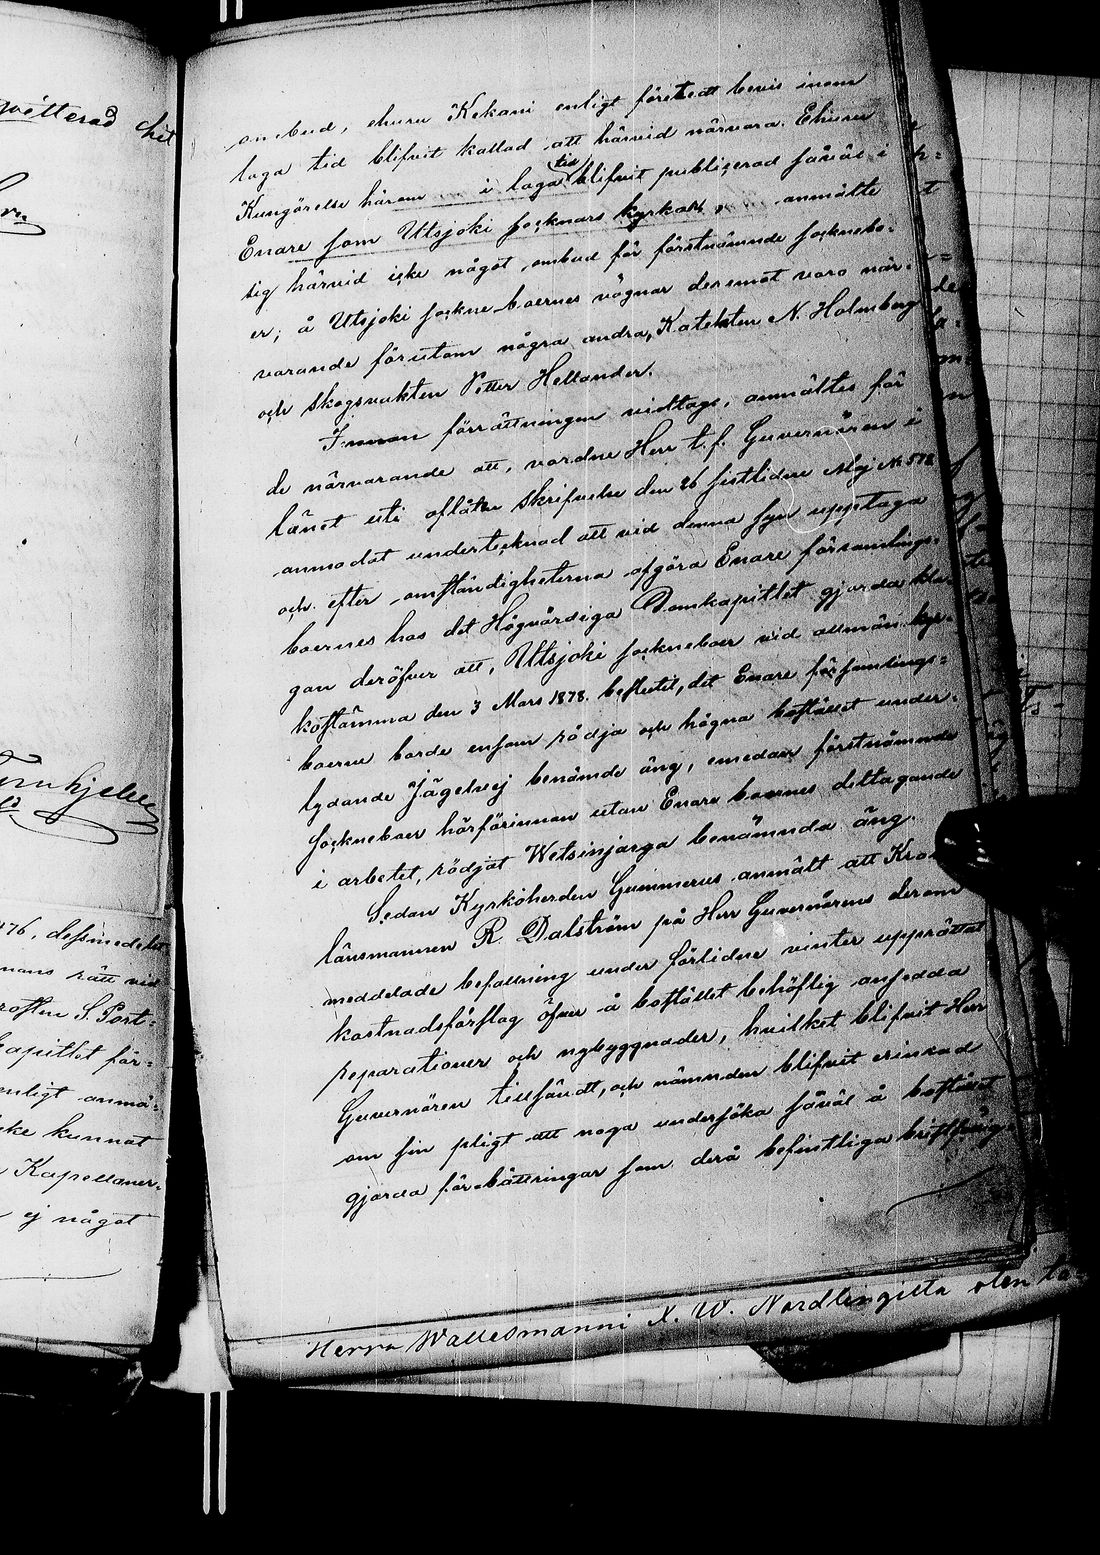 ombud, ehuru Kekoni enligt företedt bevis inom
laga tid blifvit kallad att härvid närvara. Ehuru
Kungörelse härom i laga tid blifvit publiçerad såväl i
Enare som Utsjoki soçknars kyrkor, anmälte
sig härvid içke något ombud för förstnämnde soçknebo-
er; å Utsjoki soçkneboernes vägnar deremot voro när-
varande förutom några andra, Katekten N. Holmberg
och skogsvakten Petter Hellander.
Innan förrättningen vidtogs, anmältes för
de närvarande att, vordne Herr t.f. Guvernören i
länet uti aflåten skrifvelse den 26 sistlidne Maj No 578
anmodat underteçknad att vid denna syn upptaga
och efter omständigheterna afgöra Enare församlings-
boernes hos det Högvördiga Domkapitlet gjorda kla-
gan deröfver att, Utsjoki soçkneboer vid allmän kyr-
kostämma den 3 Mars 1878 beslutit, det Enare församlings-
boerne borde ensam rödja och hägna bostället under-
lydande Jägelvej benämde äng, emedan förstnämnde
soçkneboer härförinnan utan Enare boernes deltagande
i arbetet, rödjat Wetsinjarga benämnda äng.
Sedan Kyrkoherden Gummerus anmält att Kro
länsmannen R. Dalström på Herr Guvernörens derom
meddelade befallning under förlidne vinter upprättat
kostnadsförslag öfver å bostället behöflig ansedda
reparationer och nybyggnader, hvilket blifvit Herr
Guvernören tillsändt, och nämnden blifvit erinrad
om sin pligt att noga undersöka såväl å bostället
gjorda förbättringar som derå befintliga
Herra Wallesmanni K. W. Nordlingilta olen
qvitterad hit
76, dessmedelst
mans rätt vid
rosten S. Port-
Capitlet för-
enligt anmä-
ke kunnat
Kapellaner-
ej något